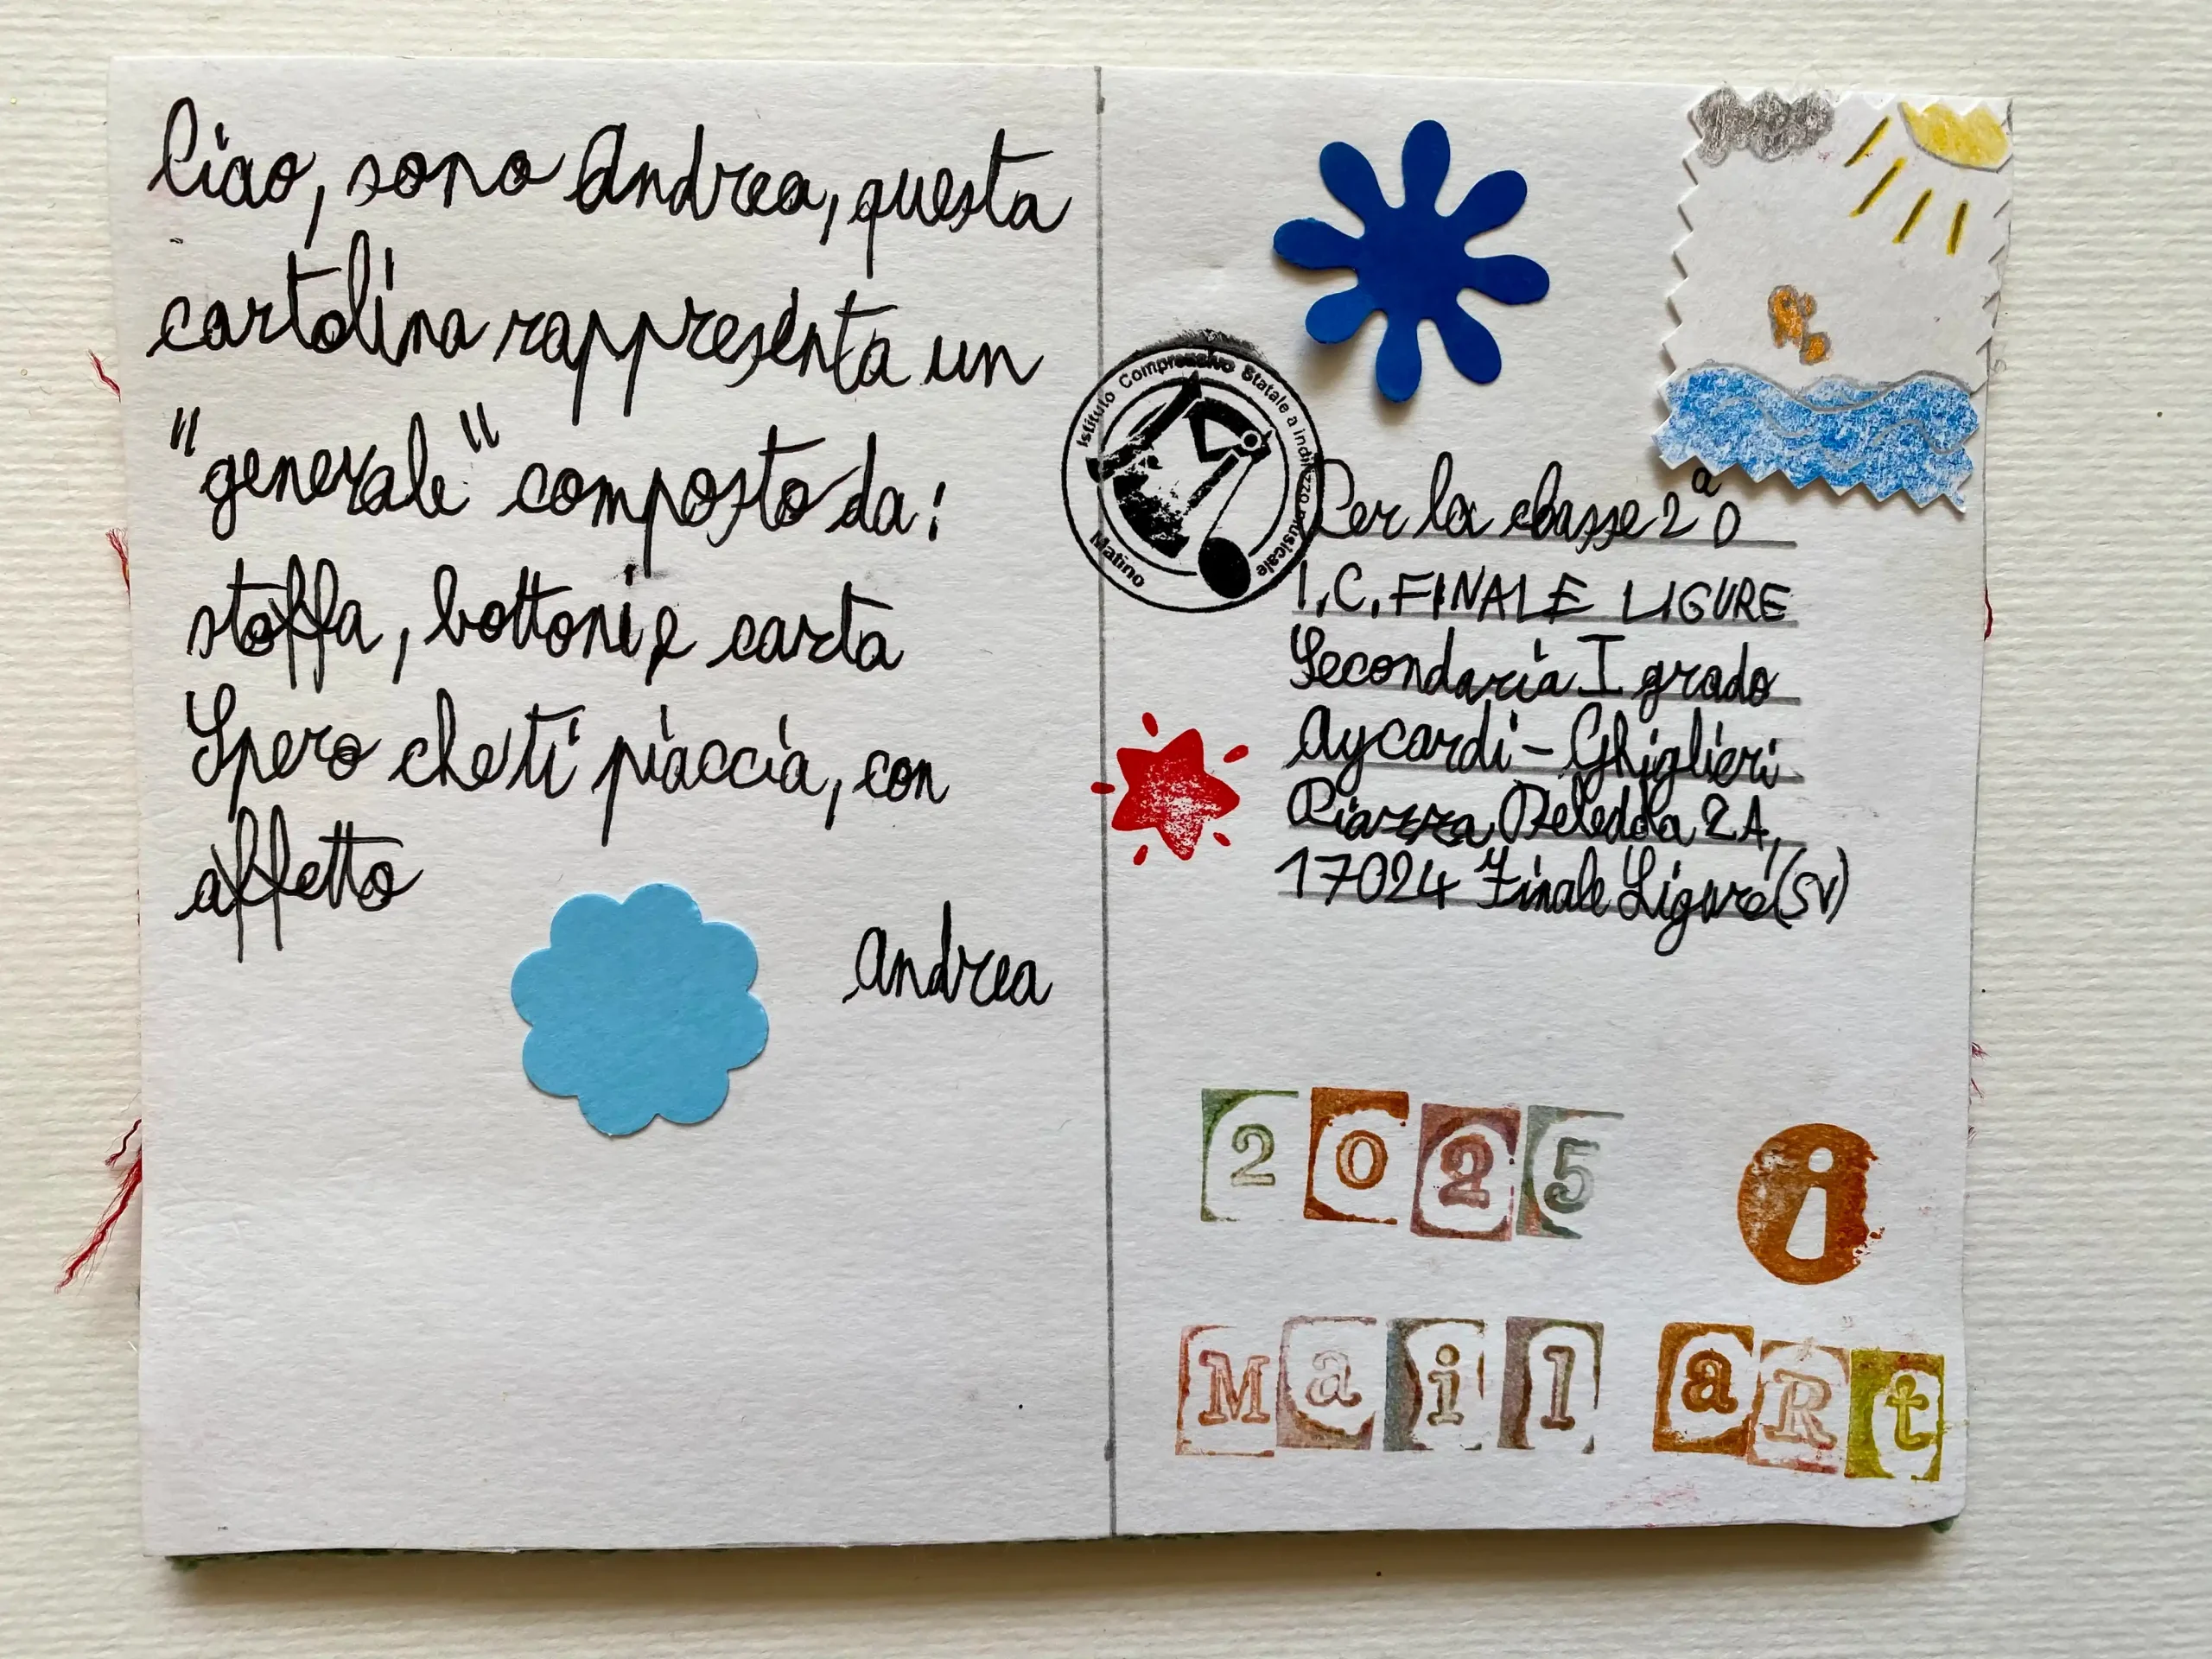 Ciao, sono Andrea, questa
cartolina rappresenta un
"generale" composto da:
stoffa, bottoni e carta
Spero che ti piaccia, con
affetto
Andrea
Istituto Comprensivo Statale a indirizzo musicale
Matino
Per la classe 2ª D
I.C. FINALE LIGURE
Secondaria I grado
Aycardi-Ghiglieri
Piazza Deledda 2A,
17024 Finale Ligure (SV)
2025
i
Mail aRt